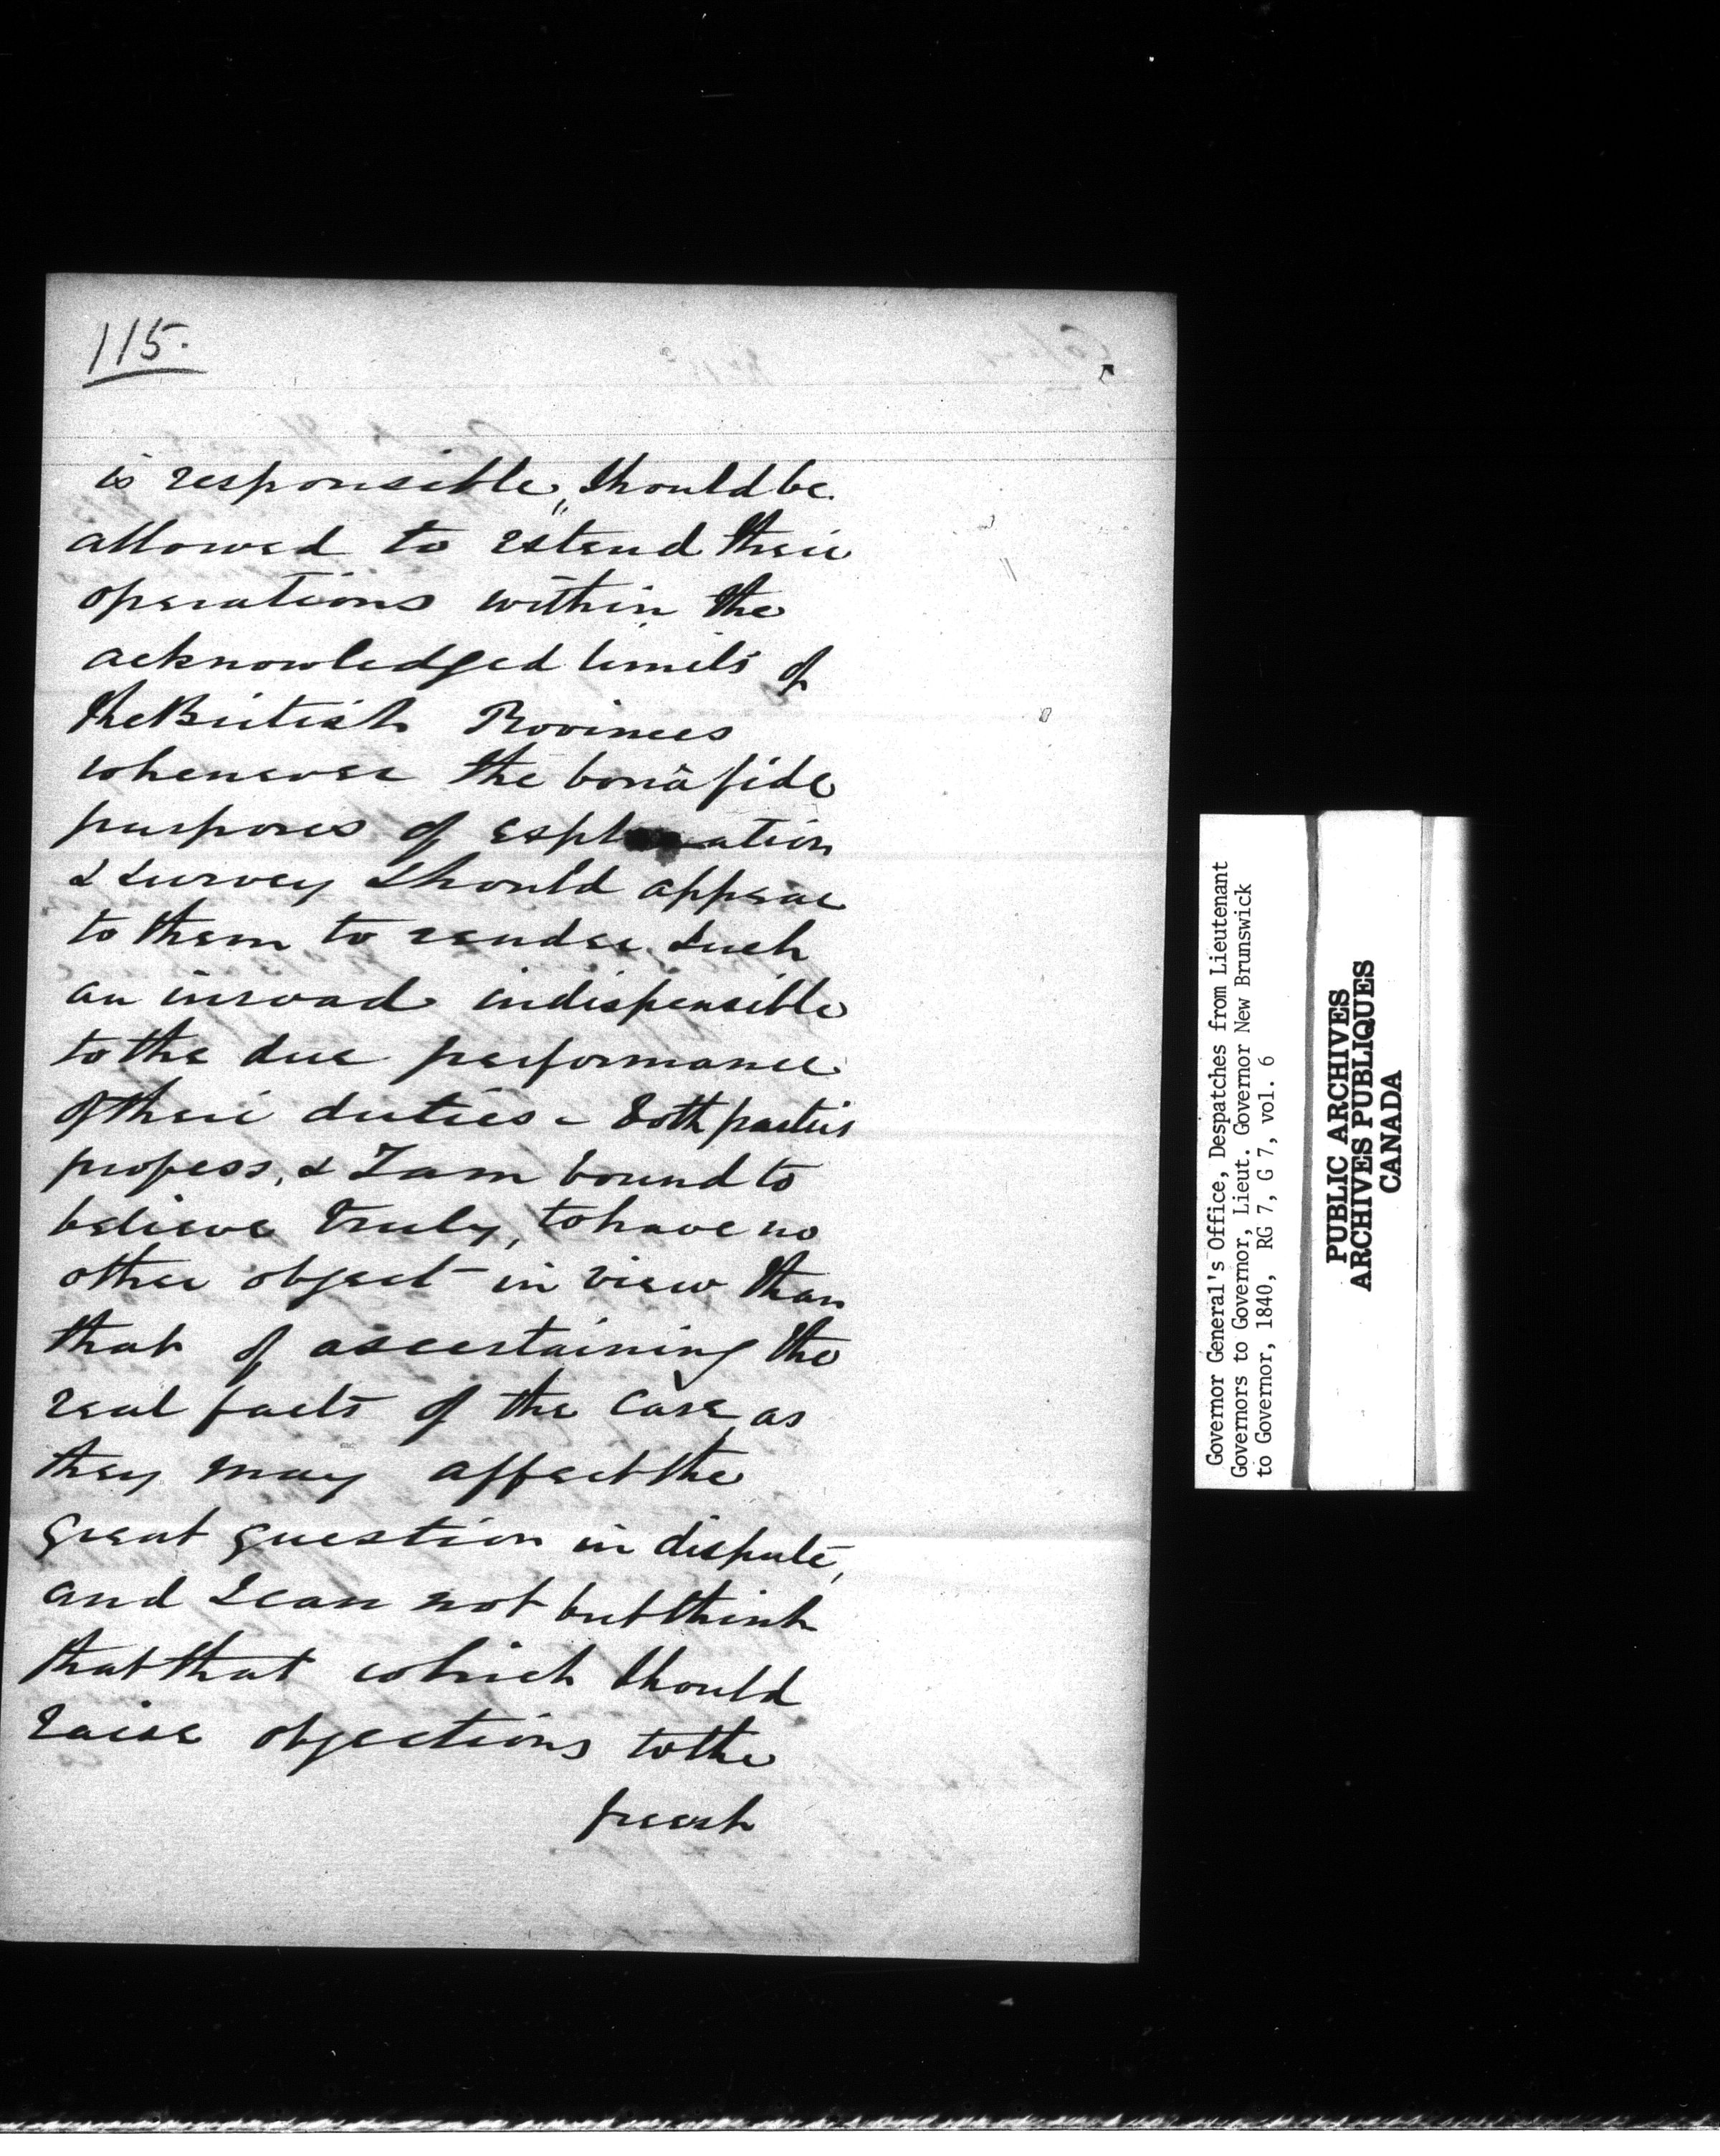 115.
is responsible, should be
allowed to extend their
operations within the
acknowledged limits of
the British Provinces
whenever the bonâ fide
purposes of exploration
& survey should appear
to them to render such
an inroad indispensible
to the due performance
of their duties - Both parties
profess, & I am bound to
believe truly, to have no
other object in view than
that of ascertaining the
real facts of the case, as
they may affect the
great question in dispute,
and I can not but think
that that which should
raise objections to the
fresh
Governor General's Office, Despatches from Lieutenant
Governors to Governor, Lieut. Governor New Brunswick
to Governor, 1840, RG 7, G 7, vol. 6
PUBLIC ARCHIVES
ARCHIVES PUBLIQUES
CANADA